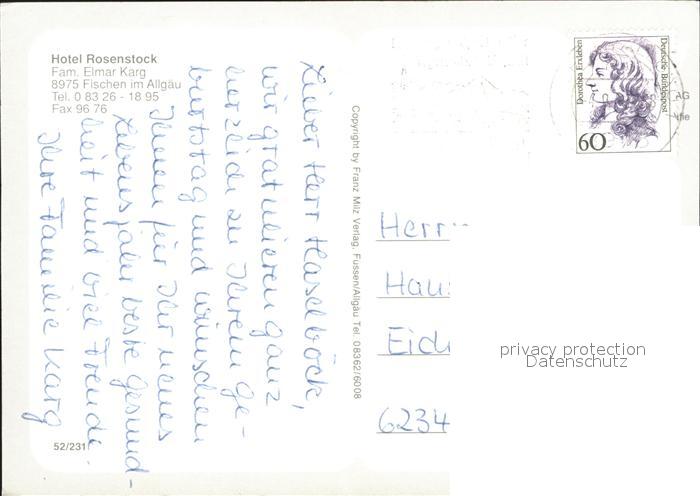 Hotel Rosenstock
Fam. Elmar Karg
8975 Fischen im Allgäu
Tel. 0 83 26 - 18 95
Fax 96 76
Lieber Herr Haselböck,
wir gratulieren ganz
herzlich zu Ihrem Ge-
burtstag und wünschen
Ihnen für Ihr neues
Lebensjahr beste Gesund-
heit und viel Freude.
Ihre Familie Karg
52/231
Copyright by Franz Milz Verlag, Füssen/Allgäu Tel. 08362/6008
Dorothea Erxleben
Deutsche Bundespost
60
AG
Herr
Hau
Eich
6234
privacy protection
Datenschutz